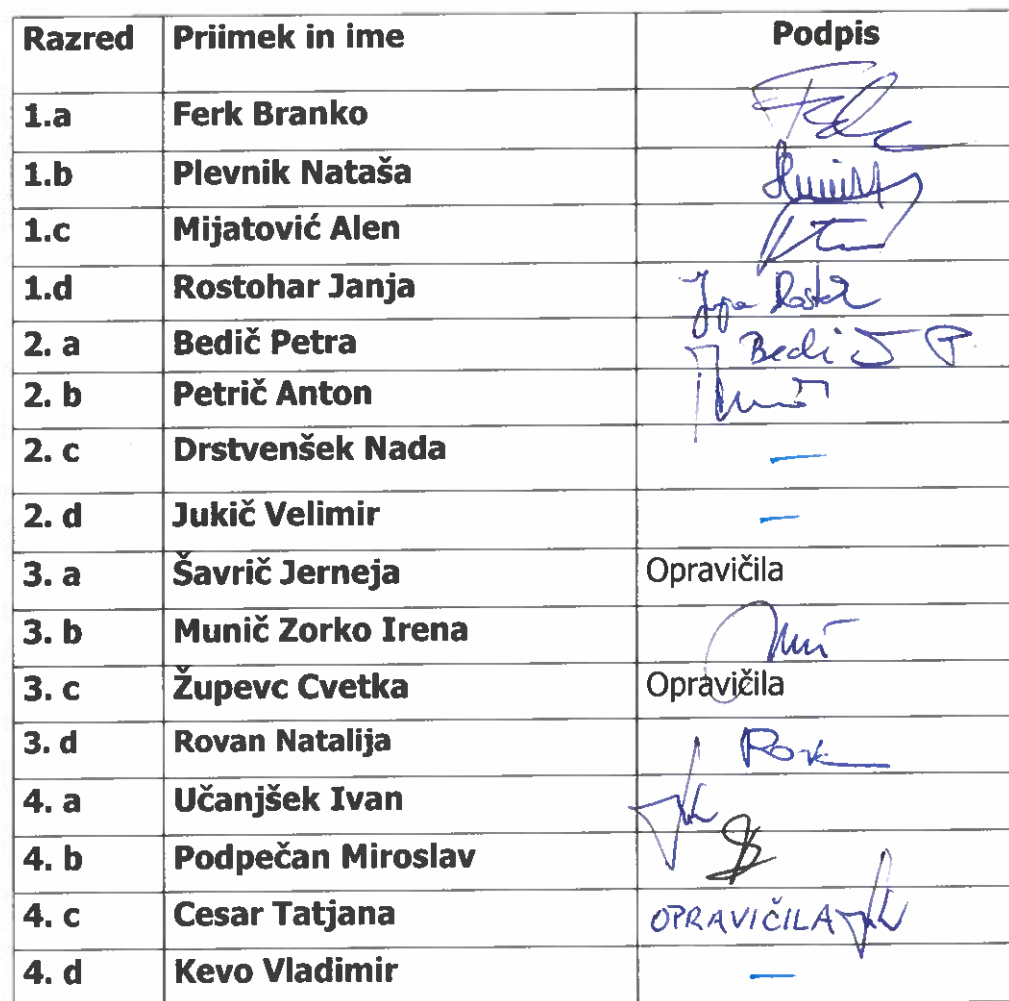 Razred Priimek in ime Podpis
1.a Ferk Branko
1.b Plevnik Nataša
1.c Mijatović Alen
1.d Rostohar Janja
2. a Bedič Petra
2. b Petrič Anton
2. c Drstvenšek Nada –
2. d Jukič Velimir –
3. a Šavrič Jerneja Opravičila
3. b Munič Zorko Irena
3. c Župevc Cvetka Opravičila
3. d Rovan Natalija
4. a Učanjšek Ivan
4. b Podpečan Miroslav
4. c Cesar Tatjana OPRAVIČILA
4. d Kevo Vladimir –